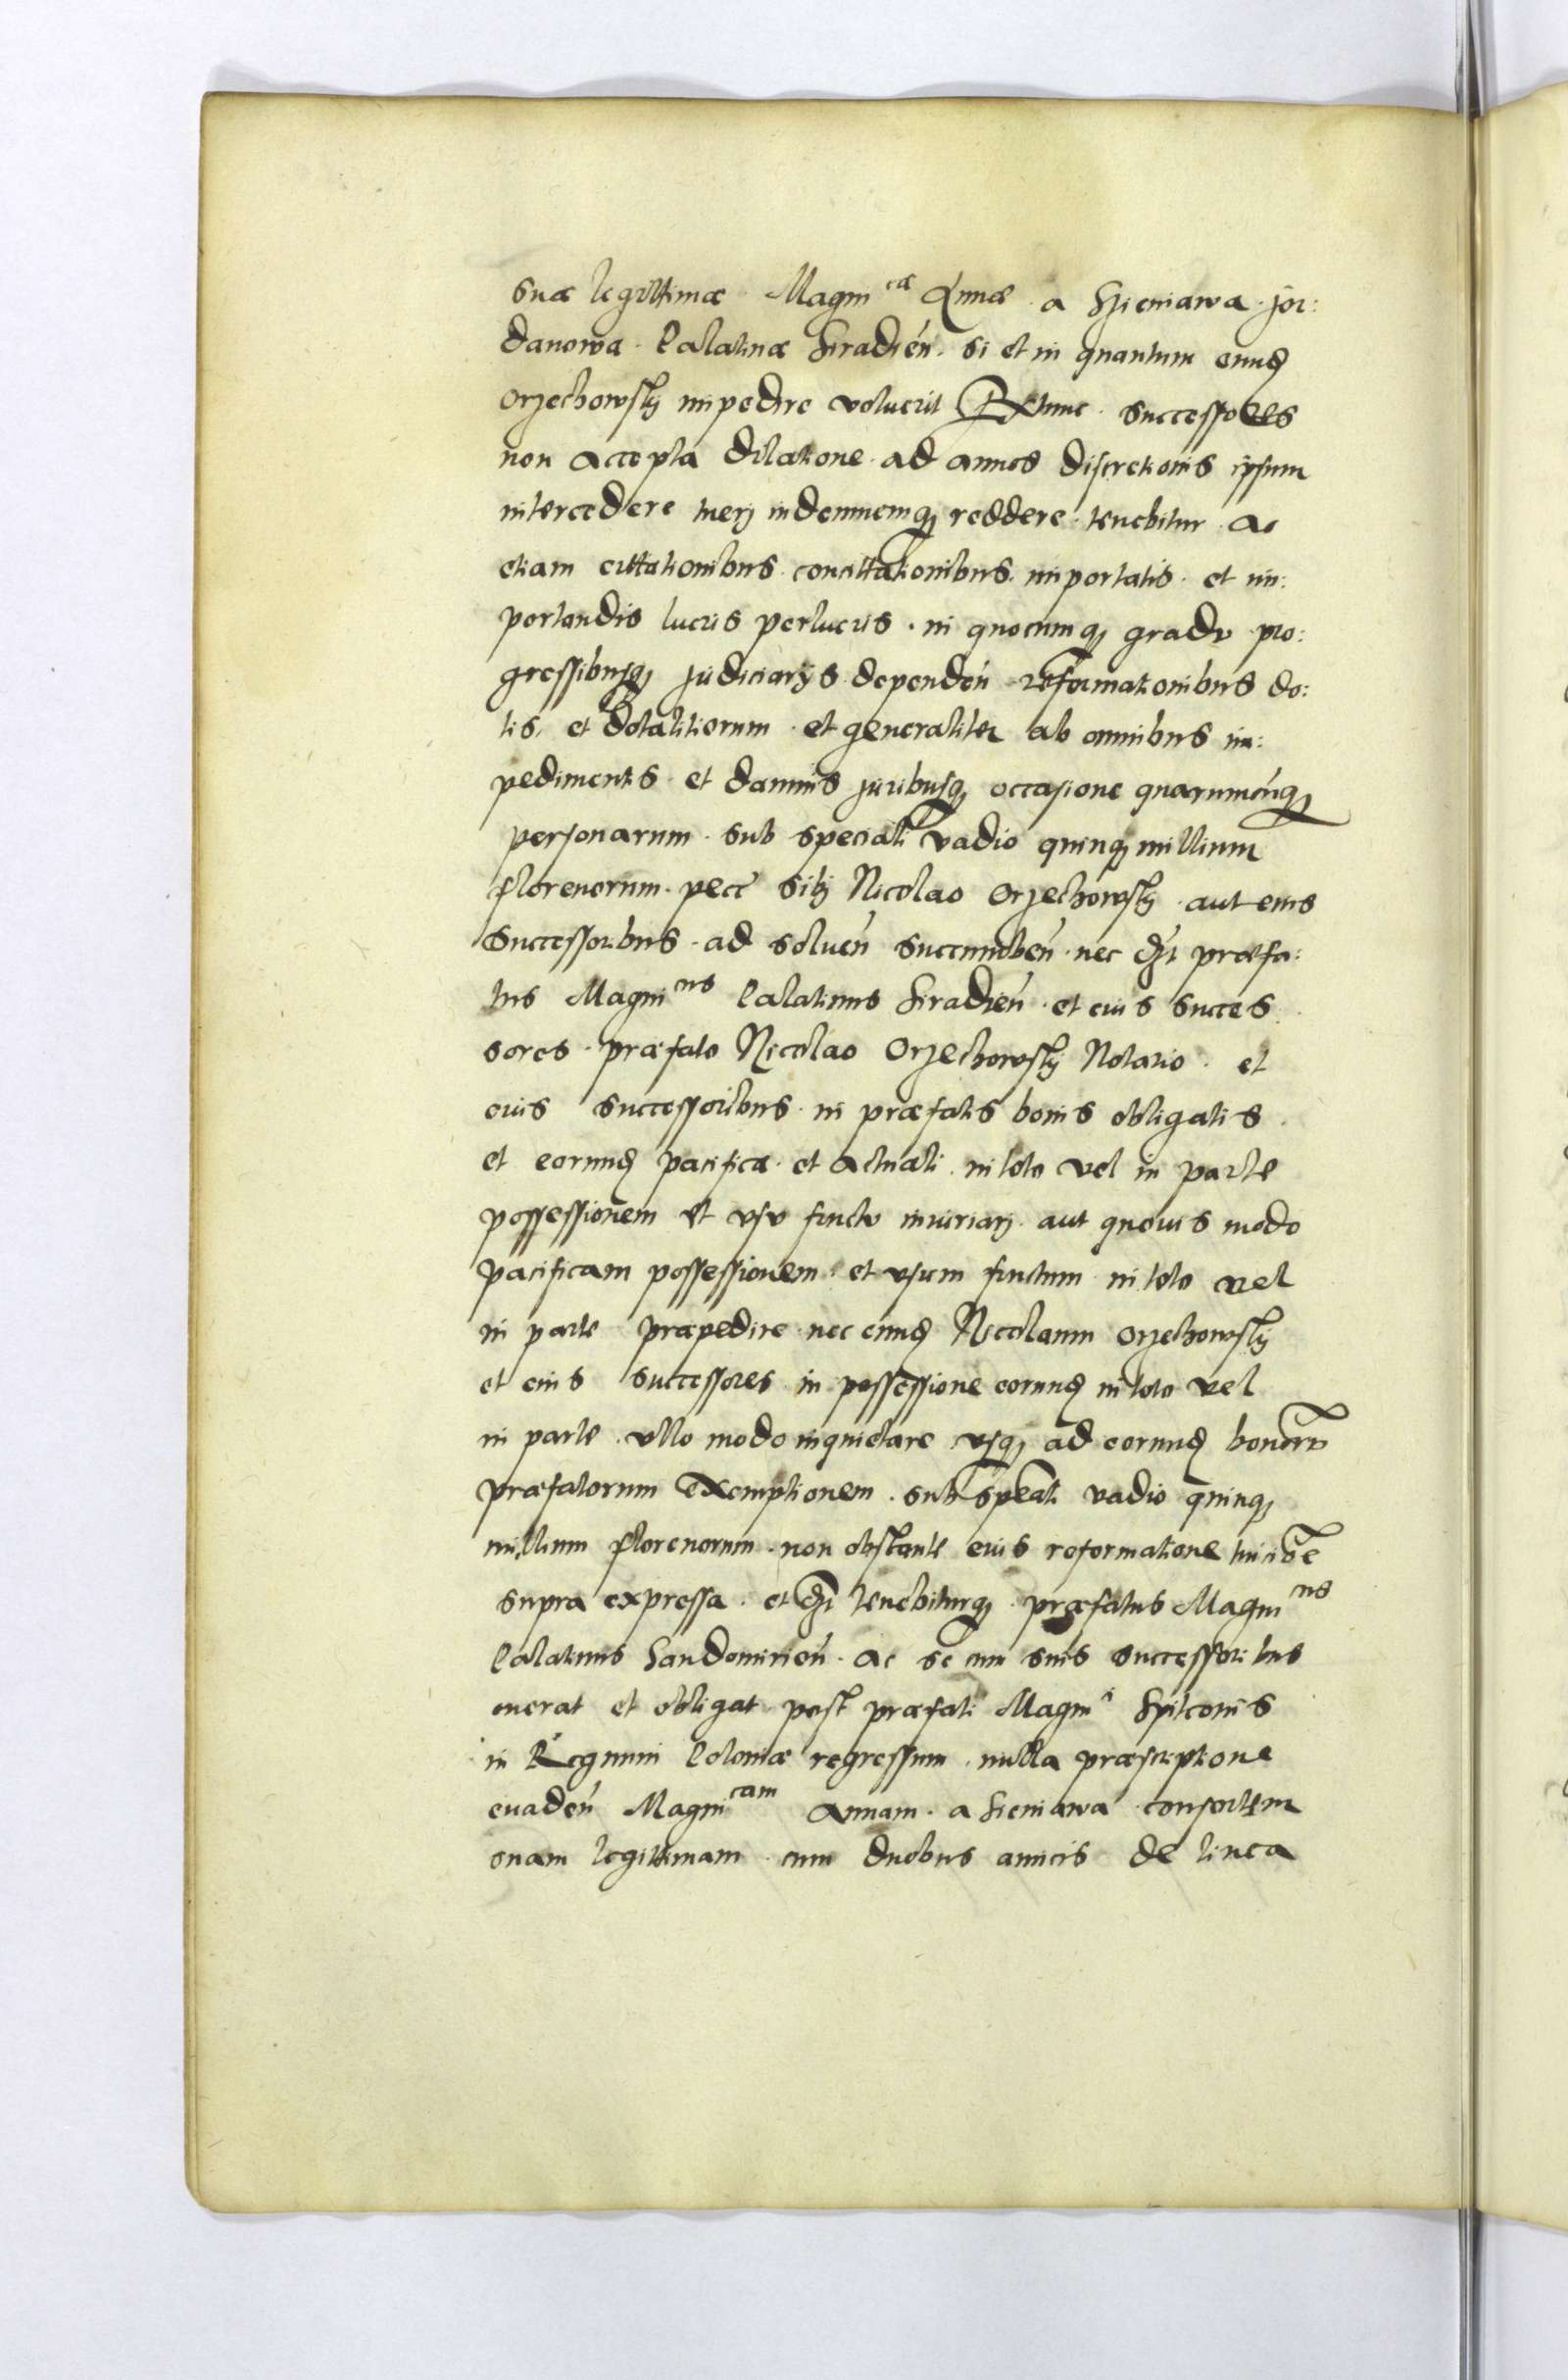 suæ legittimæ Magni^cæ Annæ a Sieniawa Jor:
danowa Palatinæ Siradień. si et in quantum eund
Orzechowsky impedire voluerit Extunc successores
non accepta dilatione ad annos discretionis ipsum
intercedere tuerj indemnemq reddere tenebitur ac
etiam cittationibus concittationibus importatis et im:
portandis lucris perlucris in quocumq gradu pro:
gressibusq judiciarijs dependeń reformationibus do:
tis et dotalitiorum et generaliter ab omnibus im:
pedimentis et damnis juribusq occasione quarumcunq
personarum sub speciali vadio quinq millium
florenorum pecc sibj Nicolao Orzechowsky aut eius
Successoribus ad solueń succumbeń nec præfa:
tus Magni^cus Palatinus Siradień et eius succes
sores præfato Nicolao Orzechowsky Notario et
eius successoribus in præfatis bonis obligatis
et eorund pacifica et actuali in toto vel in parte
possessionem et vsu fructu iniuriarj aut quouis modo
pacificam possessionem et vsum fructum in toto vel
in parte præpedire nec eund Nicolaum Orzechowsky
et eius successores in possessione eorund in toto vel
in parte vllo modo inquietare vsq ad eorund bonorũ
præfatorum exemptionem sub speali vadio quinq
millium florenorum non obstante eius reformatione
supra expressa et tenebiturq præfatus Magni^cus
Palatinus Sandomirień ac se cum suis successoribus
onerat et obligat post præfati Magni^ci Spitconis
in Regnum Poloniæ regressum nulla præscriptione
euadeń Magni^cam Annam a Sieniawa consortem
suam legittimam cum duobus amicis de linea